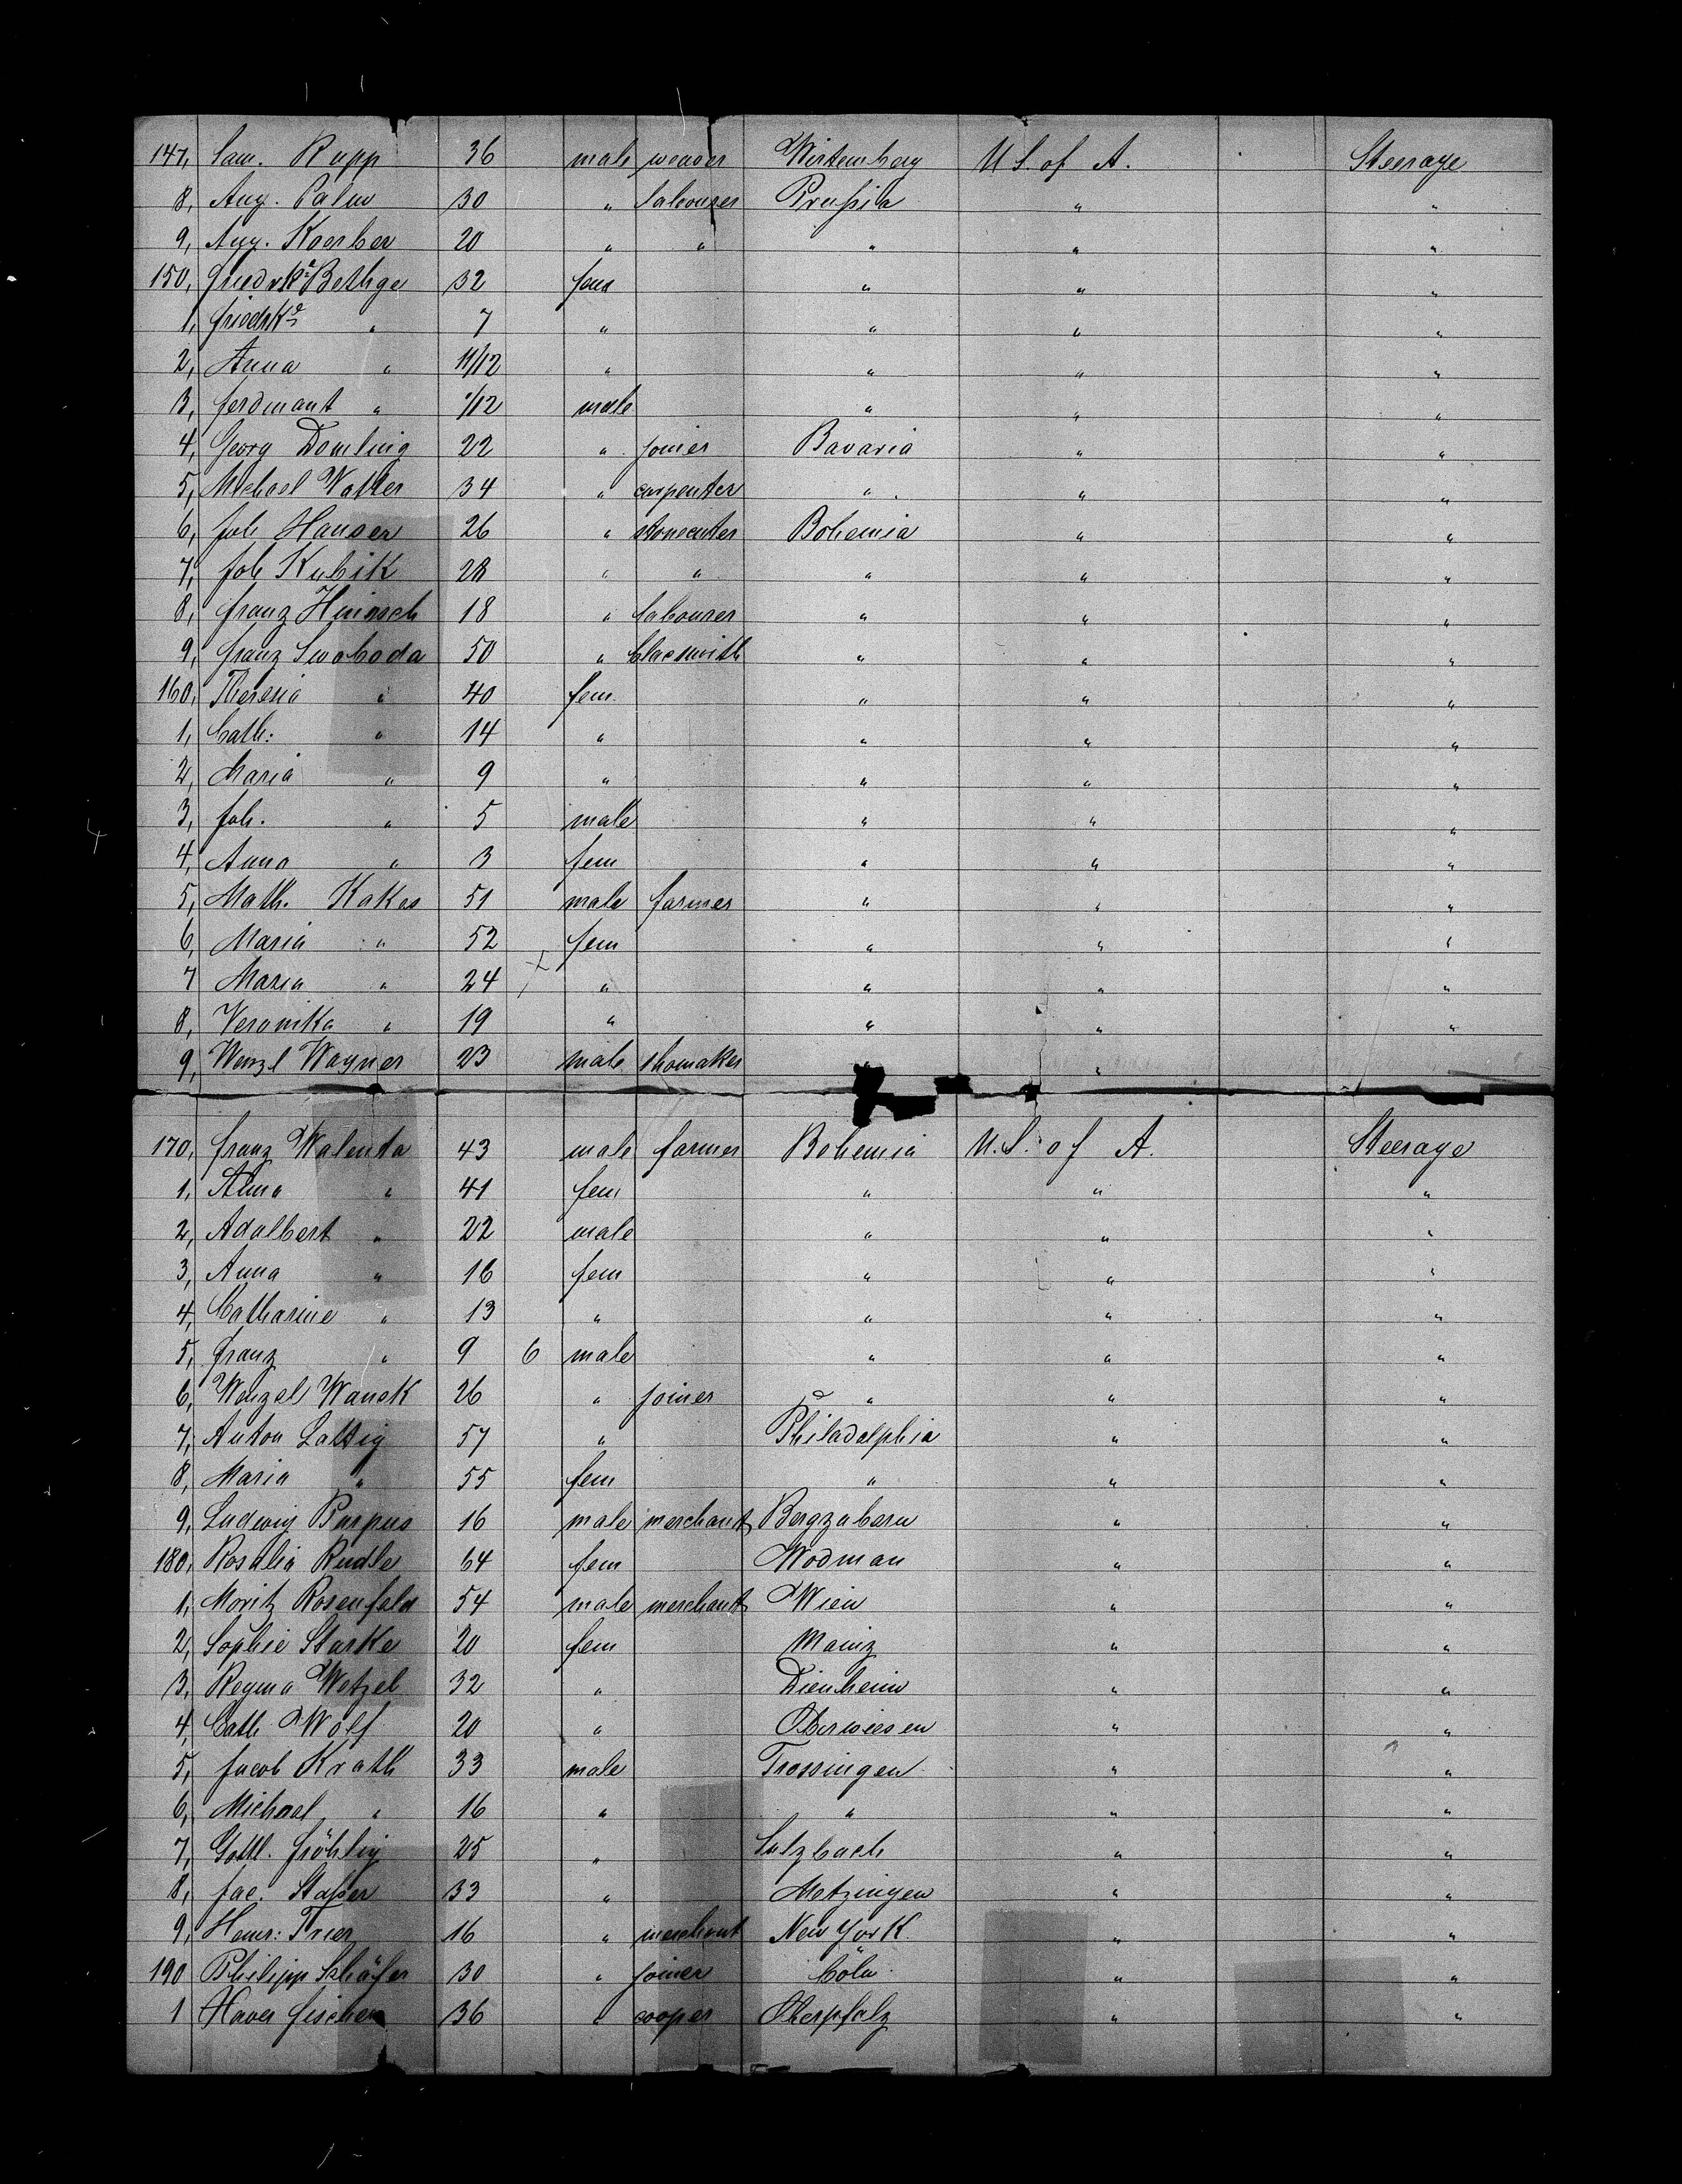 147, Sam. Rupp 36 male weaver Wirtemberg U S. of A. Steerage
8, Aug. Palm 30 " labourer Prußia " "
9, Aug. Koerber 20 " " " " "
150, Friedrke Bethge 32 fem " " "
1, Friedrke " 7 " " " "
2, Anna " 11/12 " " " "
3, Ferdinant " 1/12 male " " "
4, Georg Domling 22 " joiner Bavaria " "
5, Michael Walter 34 " carpenter " " "
6, Joh Hauser 26 " stonecutter Bohemia " "
7, Joh Kubik 28 " " " " "
8, Franz 18 " labourer " " "
9, Franz Swoboda 50 " blacsmith " " "
160, Theresia " 40 fem. " " "
1, Cath: " 14 " " " "
2, Maria " 9 " " " "
3, Joh. " 5 male " " "
4, Anna " 3 fem " " "
5, Math. Kakes 51 male farmer " " "
6, Maria " 52 fem " " "
7 Maria " 24 " " " "
8, Veronika " 19 " " " "
9, Wenzl Wagner 23 male shomaker "
170, Franz Walenta 43 male farmer Bohemia U. S. of A. Steerage
1, Anna " 41 fem " " "
2, Adalbert " 22 male " " "
3, Anna " 16 fem " " "
4, Catharine " 13 " " " "
5, Franz " 9 6 male " " "
6, Wenzel Wanek 26 " joiner " " "
7, Anton Lattig 57 " Philadelphia " "
8, Maria " 55 fem " " "
9, Ludwig Purpus 16 male merchant Bergzabern " "
180, Rosalia Rudle 64 fem Wodman " "
1, Moritz Rosenfeld 54 male merchant Wien " "
2, Sophie Starke 20 fem Mainz " "
3, Regina Wetzel 32 " Dienheim " "
4, Cath Wolf 20 " Oberwiesen " "
5, Jacob Krath 33 male Trossingen " "
6, Michael " 16 " " " "
7, Gottl. Fröhlig 25 " Sulzbach " "
8, Jac. Staßer 33 " Metzingen " "
9, Heinr: Trier 16 " merchant New York. " "
190 Philipp Schäfer 30 " joiner Cöln " "
1 Xaver Fischer 36 " cooper Oberpfalz " "